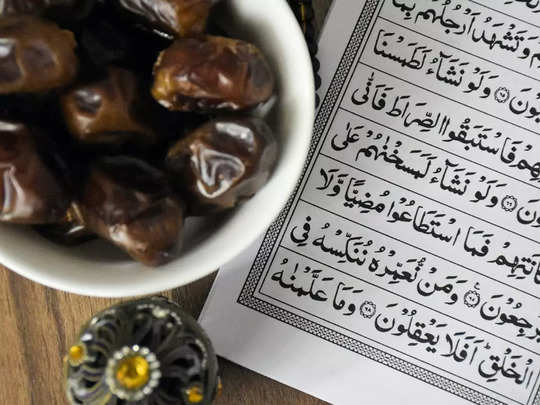 وَتَشْهَدُ اَرْجُلُهُمْ بِمَا
وَلَوْ نَشَآءُ لَطَمَسْنَا
فَاسْتَبَقُوا الصِّرَاطَ فَاَنّٰى
وَلَوْ نَشَآءُ لَمَسَخْنٰهُمْ عَلٰى
فَمَا اسْتَطَاعُوْا مُضِيًّا وَّلَا
يَرْجِعُوْنَ ۶۷ وَمَنْ نُّعَمِّرْهُ نُنَكِّسْهُ فِى
الْخَلْقِ ؕ اَفَلَا يَعْقِلُوْنَ ۶۸ وَمَا عَلَّمْنٰهُ